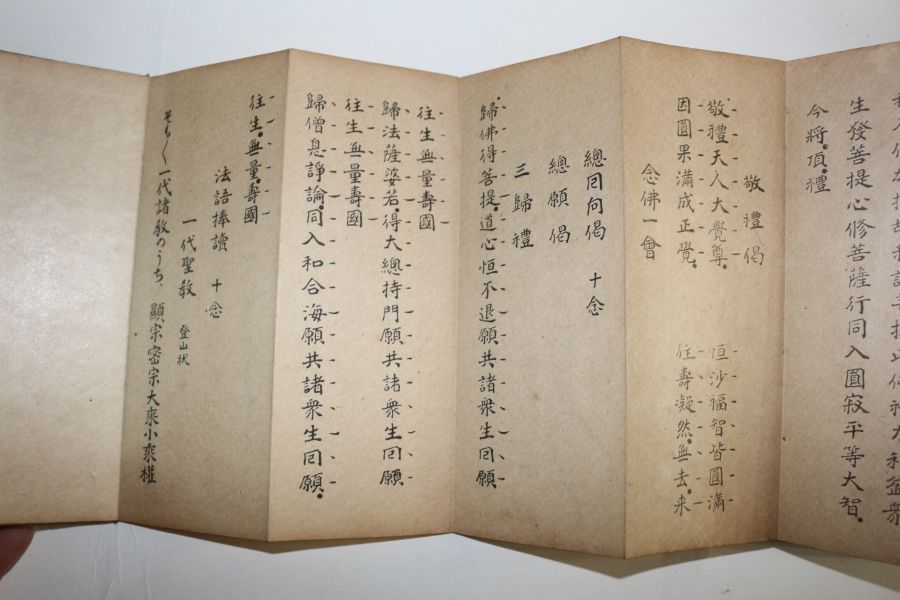 生發菩提心修菩薩行同入圓寂平等大智
今將頂禮
敬禮偈
敬禮天人大覺尊 恒沙福智皆圓滿
因圓果滿成正覺 住壽凝然無去来
念佛一會
總回向偈 十念
總願偈
三歸禮
歸佛得菩提道心恒不退願共諸衆生回願
往生無量壽國
歸法薩婆若得大總持門願共諸衆生回願
往生無量壽國
歸僧息諍論同入和合海願共諸衆生回願
往生無量壽國
法語捧讀 十念
一代聖教 登山状
そも〱一代諸教のうち、顯宗密宗大乘小乘權